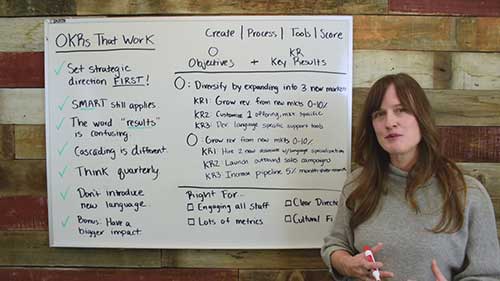 OKRs That Work
✓ Set strategic
direction FIRST!
✓ SMART still applies
✓ The word "results"
is confusing.
✓ Cascading is different
✓ Think quarterly
✓ Don't introduce
new language.
✓ Bonus: Have a
bigger impact.
Create | Process | Tools | Score
O KR
Objectives + Key Results
O: Diversify by expanding into 3 new markets
KR1: Grow rev from new mkts 0-10%
KR2: Customize 1 offering, mkt. specific
KR3: Dev language specific support tools
O Grow rev from new markets 0-10%
KR1: Hire 2 new w/language specialization
KR2: Launch outbound sales campaigns
KR3: Increase pipeline 5% month over month
Right For...
☐ Engaging all staff ☐ Clear Direct
☐ Lots of metrics ☐ Cultural Fi